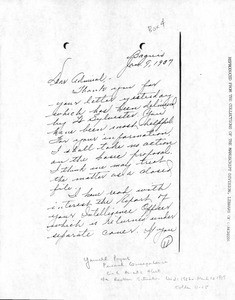 Box 4
Baguio
Jan 9, 1907
Dear Admiral -
Thank you for
your letter yesterday
which has been delivered
by Lt Sylvester. You
have been most helpful.
For your information
I shall take no action
on the basis proposed.
I think one may treat
the matter as a closed
file.
I have read with
interest the Report of
your Intelligence Officer
which is returned under
separate cover. If you
REPRODUCED FROM THE COLLECTIONS OF THE MANUSCRIPT DIVISION, LIBRARY OF CONGRESS
Yarnell Papers
Personal Correspondence